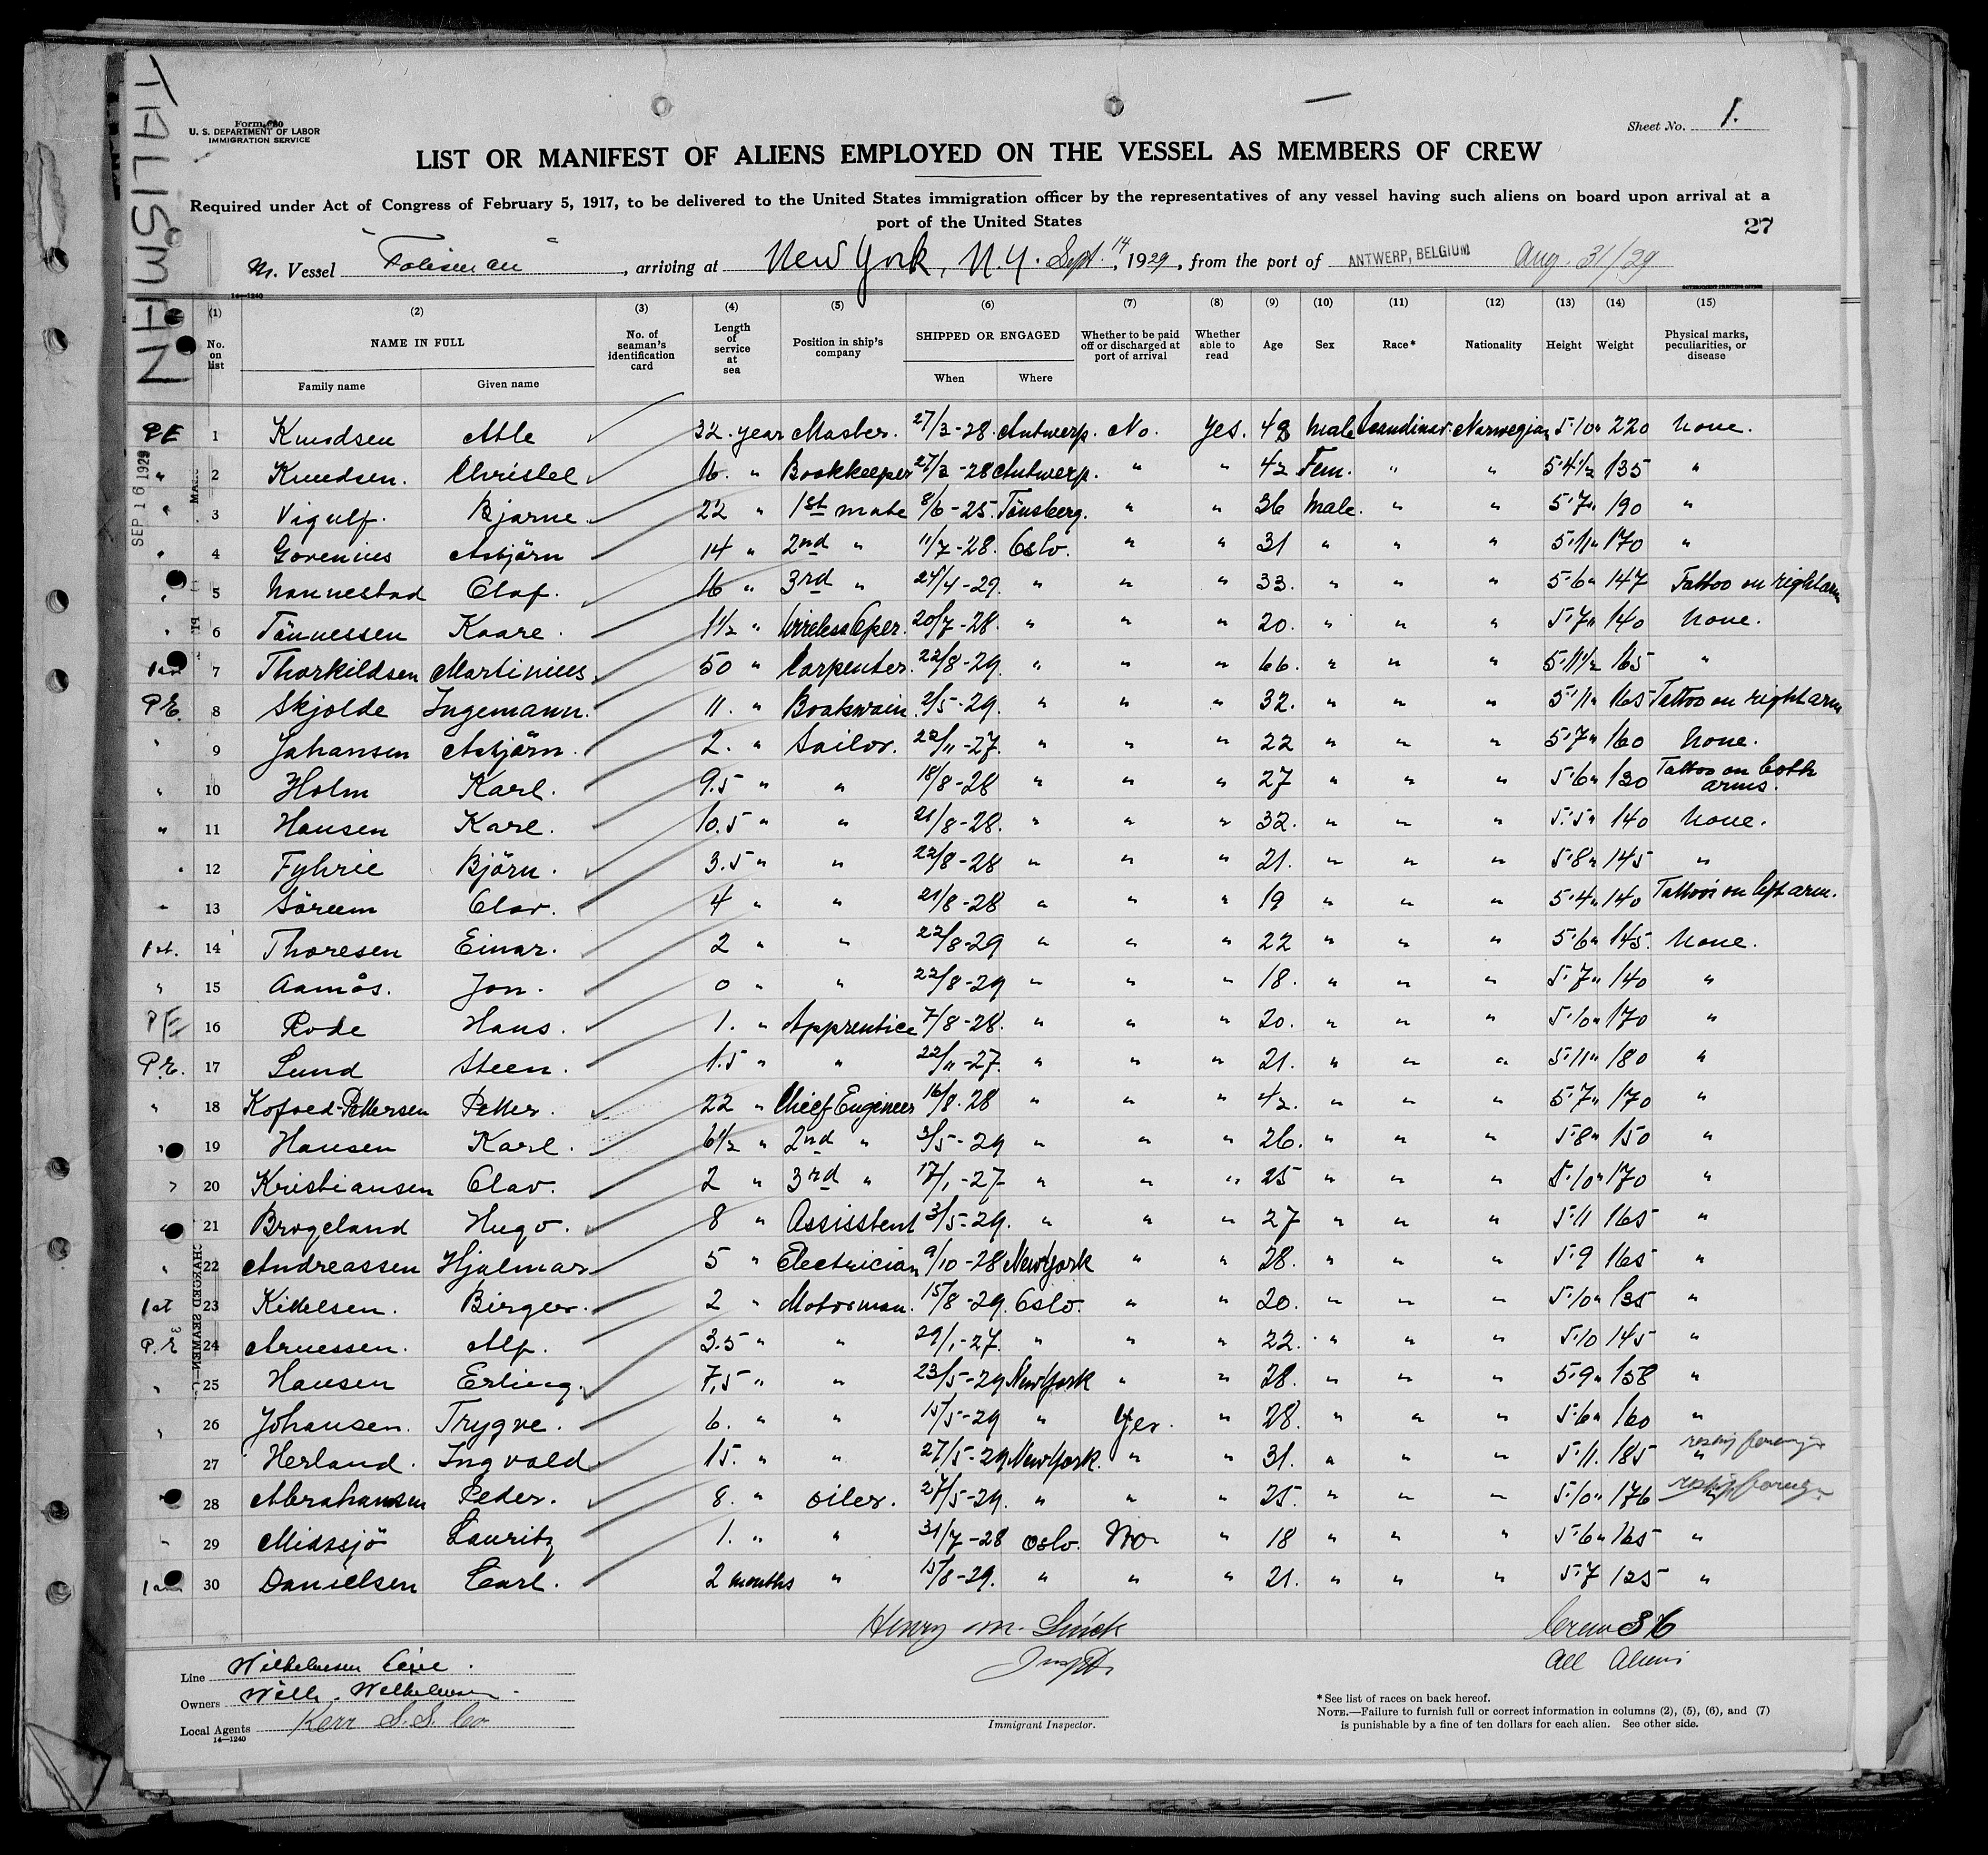 TALISMAN
Form 680
U. S. DEPARTMENT OF LABOR
IMMIGRATION SERVICE
Sheet No. 1.
LIST OR MANIFEST OF ALIENS EMPLOYED ON THE VESSEL AS MEMBERS OF CREW
Required under Act of Congress of February 5, 1917, to be delivered to the United States immigration officer by the representatives of any vessel having such aliens on board upon arrival at a
port of the United States
27
M. Vessel "Talisman", arriving at New York, N.Y. Sept. 14, 1929, from the port of ANTWERP, BELGIUM Aug. 31/29
14—1240
GOVERNMENT PRINTING OFFICE
(1) (2) (3) (4) (5) (6) (7) (8) (9) (10) (11) (12) (13) (14) (15)
No. on list NAME IN FULL No. of seaman's identification card Length of service at sea Position in ship's company SHIPPED OR ENGAGED Whether to be paid off or discharged at port of arrival Whether able to read Age Sex Race* Nationality Height Weight Physical marks, peculiarities, or disease
Family name Given name When Where
SEP 16 1929
PE 1 Knudsen Atle 32. year Master. 27/3-28. Antwerp. No. Yes. 48 Male Scandinav. Norwegian 5'10" 220 None.
" 2 Knudsen. Christel 16. " Bookkeeper 27/3-28 Antwerp. " " 42 Fem. " " 5'4 1/2 135 "
" 3 Vigulf. Bjarne. 22 " 1st mate 8/6-25. Tönsberg. " " 36 Male. " " 5'7" 190 "
" 4 Gorenius Asbjörn 14 " 2nd " 11/7-28. Oslo. " " 31 " " " 5'11" 170 "
" 5 Nannestad Olaf. 16 " 3rd " 24/4-29. " " " 33. " " " 5'6" 147 Tattoo on right arm
" 6 Tönnessen Kaare. 1 1/2 " Wireless Oper. 20/7-28. " " " 20. " " " 5'7" 140 None.
1st 7 Thorkildsen Martinius. 50 " Carpenter. 22/8-29. " " " 66. " " " 5'11 1/2 165 "
P.E. 8 Skjolde Ingemann. 11. " Boatswain. 2/5-29. " " " 32. " " " 5'11" 165 Tattoo on right arm
" 9 Johansen Asbjörn. 2. " Sailor. 22/11-27. " " " 22 " " " 5'7" 160 None.
" 10 Holm Karl. 9.5 " " 18/8-28 " " " 27 " " " 5'6" 130 Tattoo on both arms.
" 11 Hansen Karl. 10.5 " " 21/8-28. " " " 32. " " " 5'5" 140 None.
" 12 Fyhrie Björn. 3.5 " " 22/8-28 " " " 21. " " " 5'8" 145 "
" 13 Söreem Olav. 4 " " 21/8-28 " " " 19 " " " 5'4" 140 Tattoo's on left arm.
1st. 14 Thoresen Einar. 2 " " 22/8-29 " " " 22 " " " 5'6" 145. None.
" 15 Aamås. Jon. 0 " " 22/8-29 " " " 18. " " " 5'7" 140 "
PE 16 Rode Hans. 1. " Apprentice 7/8-28. " " " 20. " " " 5'10" 170 "
P.E. 17 Lund Steen. 1.5 " " 22/11-27. " " " 21. " " " 5'11" 180 "
" 18 Kofoed-Pettersen Petter. 22 " Chief Engineer 16/8.28 " " " 42. " " " 5'7" 170 "
" 19 Hansen Karl. 6 1/2 " 2nd " 3/5-29 " " " 26. " " " 5'8" 150 "
" 20 Kristiansen Olav. 2 " 3rd " 17/1-27 " " " 25 " " " 5'10" 170 "
" 21 Brogeland Hugo. 8 " Assisstent 3/5-29. " " " 27 " " " 5'11 165 "
" 22 Andreassen Hjalmar 5 " Electrician 9/10-28 New York " " 28. " " " 5'9 165 "
1st 23 Kittelsen. Birger. 2 " Motorman. 15/8-29. Oslo. " " 20. " " " 5'10" 135 "
P.E 24 Arnessen. Alf. 3.5 " " 29/1-27. " " " 22. " " " 5'10 145 "
" 25 Hansen Erling. 7,5 " " 23/5-29 New York " " 28. " " " 5'9" 158 "
" 26 Johansen. Trygve. 6. " " 15/5-29 " Yes. " 28. " " " 5'6" 160 "
27 Herland. Ingvald 15. " " 27/5-29 New York. " " 31. " " " 5'11. 185 " reship foreign
28 Abrahamsen Peder. 8. " Oiler. 27/5-29. " " " 25. " " " 5'10" 176 " reship foreign
" 29 Midtsjö Lauritz 1. " " 31/7-28 Oslo. No " 18 " " " 5'6" 165 "
1st 30 Danielsen Carl. 2 months " 15/8-29. " " " 21. " " " 5'7 125 "
Henry M.
Inspt.
Crew 36
All Aliens
Line Wilhelmsen Line.
Owners Wilh. Wilhelmsen.
Local Agents Kerr S.S. Co
14—1240
Immigrant Inspector.
* See list of races on back hereof.
NOTE.—Failure to furnish full or correct information in columns (2), (5), (6), and (7)
is punishable by a fine of ten dollars for each alien. See other side.